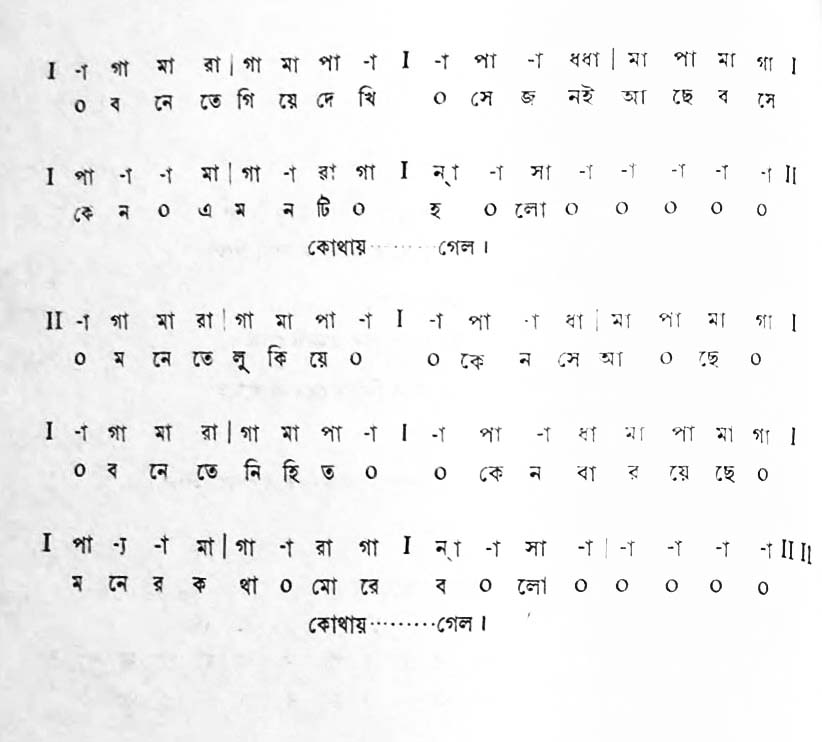 I -া গা মা রা | গা মা পা -া I -া পা -া ধধা | মা পা মা গা I
০ ব নে তে গি য়ে দে খি ০ সে জ নই আ ছে ব সে
I পা -া -া মা | গা -া রা গা I ন্‌া -া সা -া -া -া -া -া II
কে ন ০ এ ম ন টি ০ হ ০ লো ০ ০ ০ ০ ০
কোথায়·········গেল ।
II -া গা মা রা | গা মা পা -া I -া পা -া ধা | মা পা মা গা I
০ ম নে তে লু কি য়ে ০ ০ কে ন সে আ ০ ছে ০
I -া গা মা রা | গা মা পা -া I -া পা -া ধা মা পা মা গা I
০ ব নে তে নি হি ত ০ ০ কে ন বা র য়ে ছে ০
I পা -া -া মা | গা -া রা গা I ন্‌া -া সা -া | -া -া -া -া II II
ম নে র ক থা ০ মো রে ব ০ লো ০ ০ ০ ০ ০
কোথায়·········গেল ।